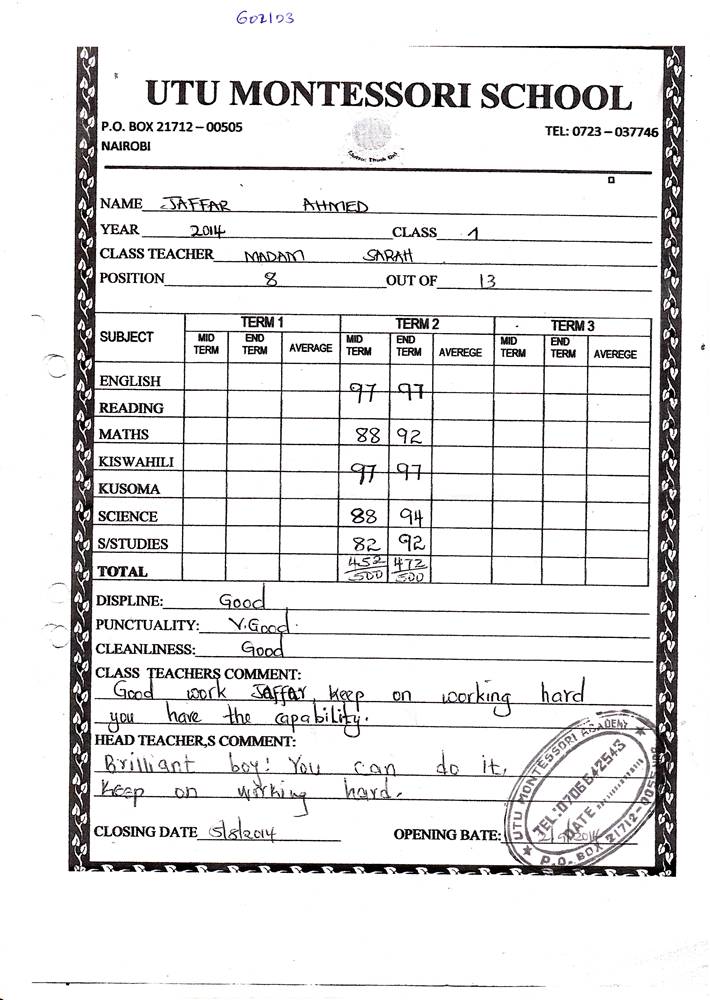 602103
UTU MONTESSORI SCHOOL
P.O. BOX 21712 – 00505
TEL: 0723 – 037746
NAIROBI
NAME JAFFAR AHMED
YEAR 2014 CLASS 1
CLASS TEACHER MADAM SARAH
POSITION 8 OUT OF 13
SUBJECT TERM 1 TERM 2 TERM 3
MID TERM END TERM AVERAGE MID TERM END TERM AVEREGE MID TERM END TERM AVEREGE
ENGLISH
97 97
READING
MATHS 88 92
KISWAHILI
97 97
KUSOMA
SCIENCE 88 94
S/STUDIES 82 92
TOTAL 452/500 472/500
DISPLINE: Good
PUNCTUALITY: V.Good.
CLEANLINESS: Good
CLASS TEACHERS COMMENT:
Good work JAFFAR, keep on working hard
you have the capability.
HEAD TEACHER,S COMMENT:
Brilliant boy! You can do it,
Keep on working hard.
CLOSING DATE 5/8/2014 OPENING BATE: 2/9/2014
UTU MONTESSORI ACADEMY
TEL:0706642543
DATE
P.O. BOX 21712-00